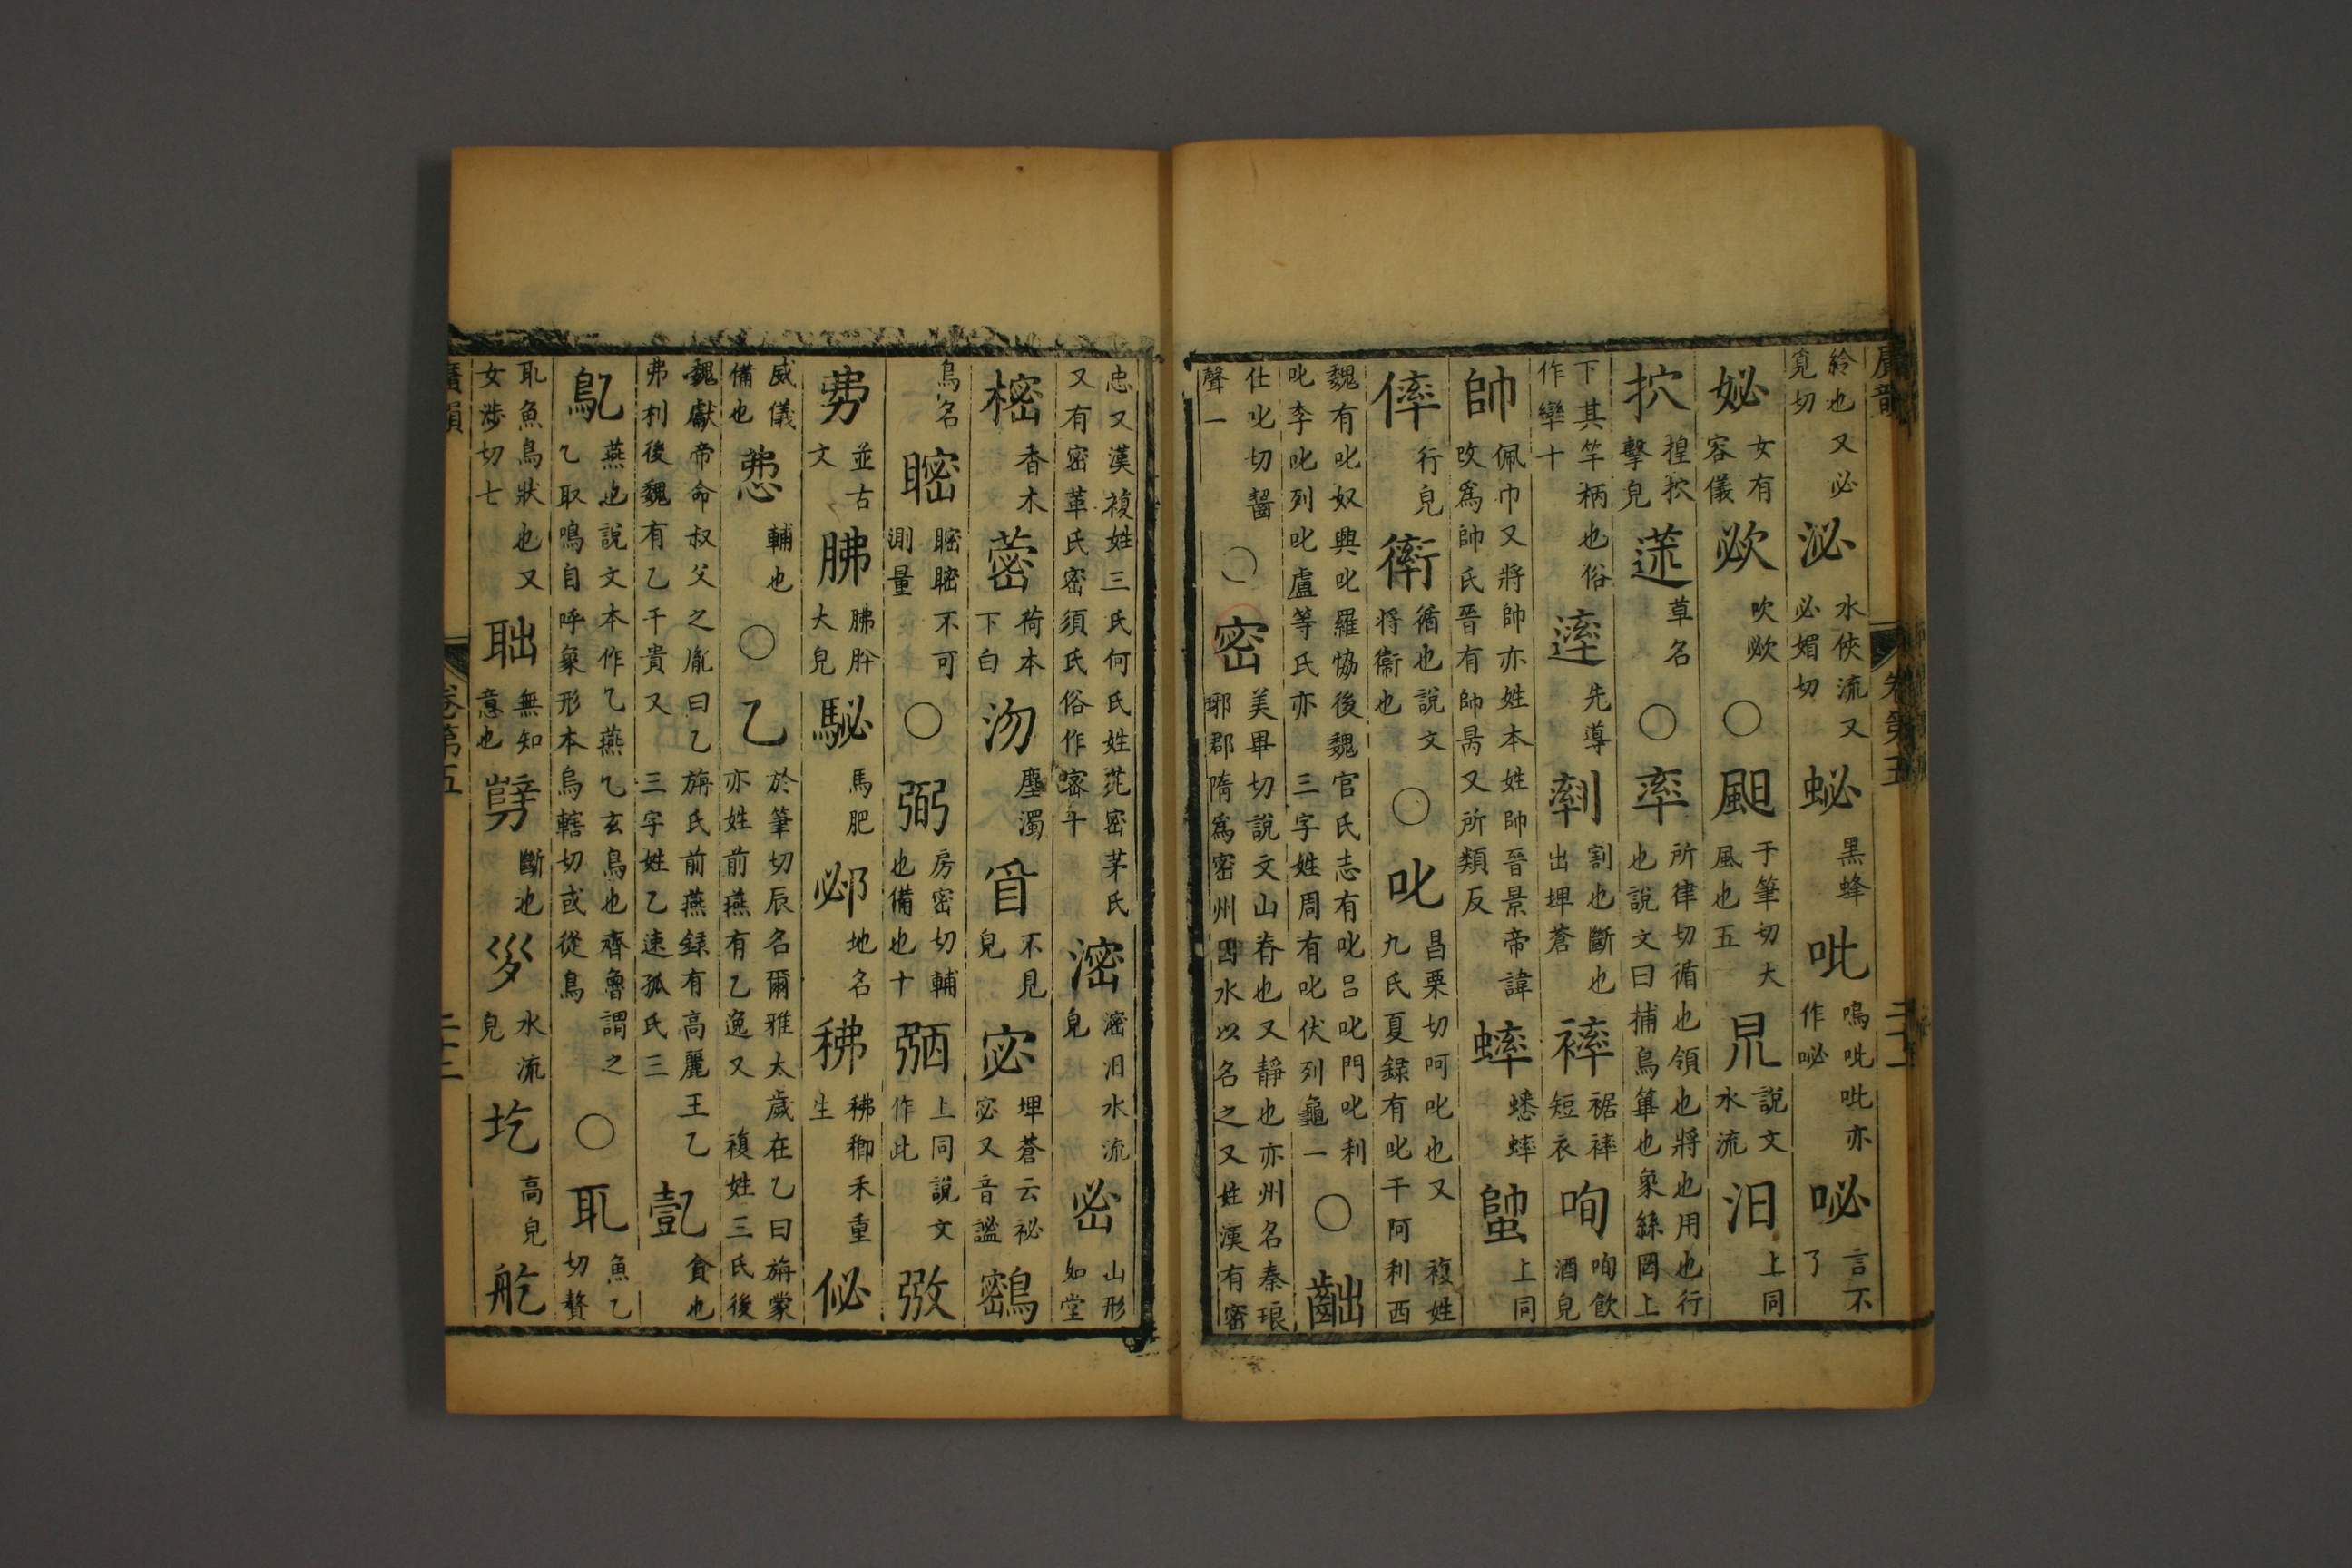 給也又必覓切泌水俠流又必媚切䖩黑蜂吡鳴吡吡亦作咇咇言不了
妼女有容儀㰫吹㰫○䫻于筆切大風也五㫑說文水流汨上同
抭揘抭擊皃蒁草名○率所律切循也領也將也用也行也說文曰捕鳥畢也象絲罔上
下其竿柄也俗作䢦十逹先導𠞩割也斷也出埤蒼𧜠裾𧜠短衣咰咰飲酒皃
帥佩巾又將帥亦姓本姓師晉景帝諱改爲帥氏晉有帥昺又所類反蟀蟋蟀䗓上同
𠌭行皃䘗循也說文將衛也○叱昌栗切呵叱也又複姓九氏夏録有叱干阿利西
魏有叱奴興叱羅協後魏官氏志有叱呂叱門叱利叱李叱列叱盧等氏亦三字姓周有叱伏列龜一○齜
仕叱切齧聲一○密美畢切說文山脊也又靜也亦州名秦琅耶郡隋爲密州因水以名之又姓漢有密
忠又漢複姓三氏何氏姓苑密茅氏又有密革氏密須氏俗作宻十滵滵汨水流皃峚山形如堂
樒香木蔤荷本下白沕塵濁䀣不見皃宓埤蒼云祕宓又音謐鷭
鳥名䁇䁇䁇不可測量○弼房密切輔也備也十弻上同說文作此㢸
𢏇並古文胇胇肸大皃駜馬肥邲地名䄶䄶䅡禾重生佖
威儀備也𢣷輔也○乙於筆切辰名爾雅太歲在乙曰旃蒙亦姓前燕有乙逸又複姓三氏後
魏獻帝命叔父之胤曰乙旃氏前燕録有高麗王乙弗利後魏有乙干貴又三字姓乙速孤氏三𧯷貪也
鳦燕也說文本作乙燕乙玄鳥也齊魯謂之乙取鳴自呼象形本烏轄切或從鳥○耴魚乙切聱
耴魚鳥狀也又女涉切七聉無知意也㔎斷也㕇水流皃圪高皃䑢
廣韻
卷第五
二十二